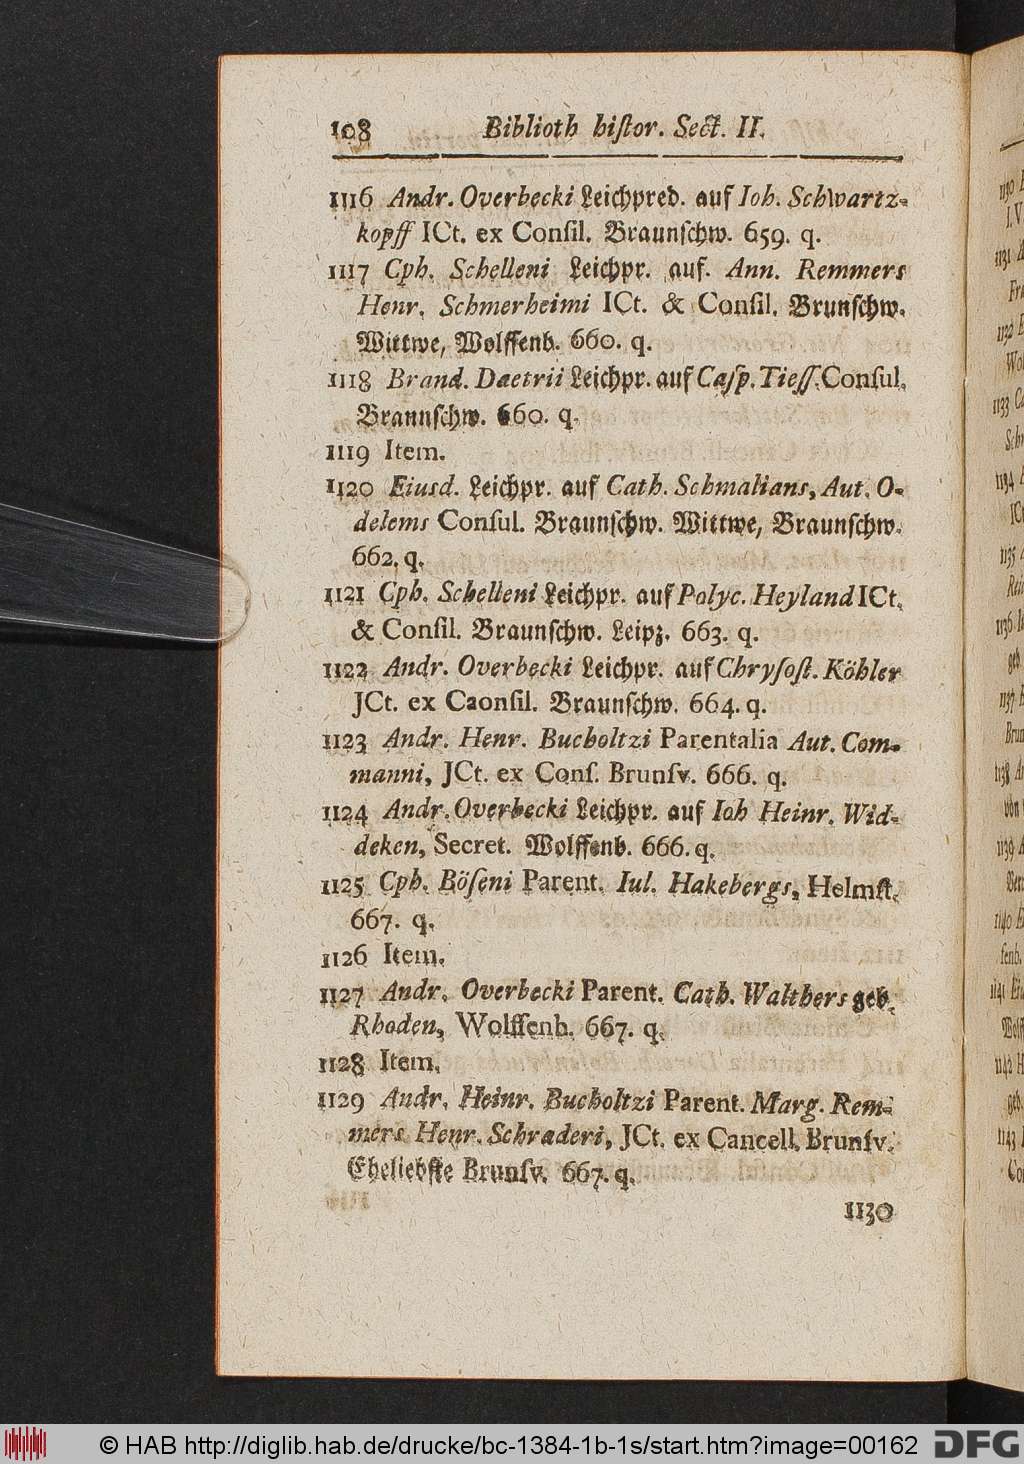 108 Biblioth histor. Sect. II.
1116 Andr. Overbecki Leichpred. auf Ioh. Schwartz-
kopff ICt. ex Consil. Braunschw. 659. q.
1117 Cph. Schelleni Leichpr. auf. Ann. Remmers
Henr. Schmerheimi ICt. & Consil. Brunschw.
Wittwe, Wolffenb. 660. q.
1118 Brand. Daetrii Leichpr. auf Casp. Tiess. Consul.
Braunschw. 660. q.
1119 Item.
1120 Eiusd. Leichpr. auf Cath. Schmalians, Aut. O-
delems Consul. Braunschw. Wittwe, Braunschw.
662. q.
1121 Cph. Schelleni Leichpr. auf Polyc. Heyland ICt.
& Consil. Braunschw. Leipz. 663. q.
1122 Andr. Overbecki Leichpr. auf Chrysost. Köhler
JCt. ex Caonsil. Braunschw. 664. q.
1123 Andr. Henr. Bucholtzi Parentalia Aut. Com-
manni, JCt. ex Cons. Brunsv. 666. q.
1124 Andr. Overbecki Leichpr. auf Ioh Heinr. Wid-
deken, Secret. Wolffenb. 666. q.
1125 Cph. Böseni Parent. Iul. Hakebergs, Helmst.
667. q.
1126 Item.
1127 Andr. Overbecki Parent. Cath. Walthers geb.
Rhoden, Wolffenb. 667. q.
1128 Item.
1129 Andr. Heinr. Bucholtzi Parent. Marg. Rem-
mers Henr. Schraderi, JCt. ex Cancell. Brunsv.
Eheliebste Brunsv. 667. q.
1130
1131
1132
1133
1134
1135
1136
1137
1138
1139
1140
1141
1142
1143
© HAB http://diglib.hab.de/drucke/bc-1384-1b-1s/start.htm?image=00162
DFG